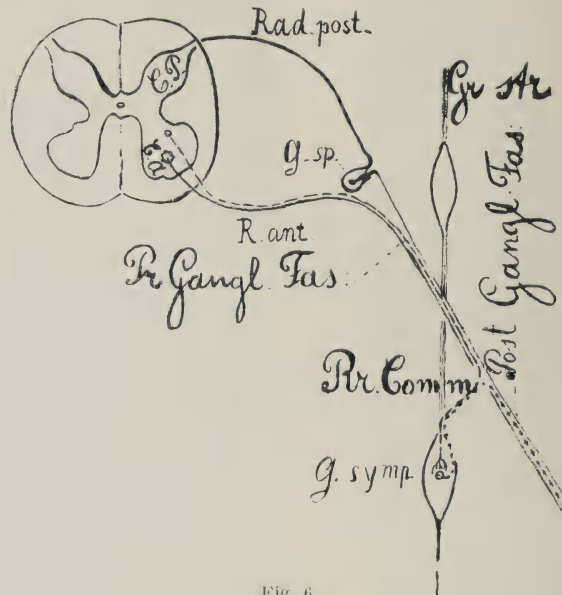 Rad. post.
Gr Str
C.P.
g. sp.
R. ant
Pr Gangl. Fas.
Post Gangl. Fas.
Rr. Comm.
g. symp.
Fig. 6